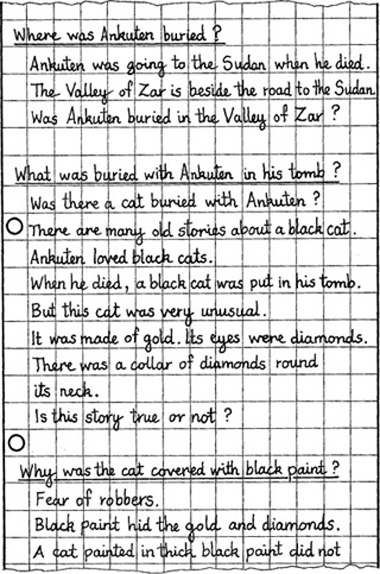 Where was Ankuten buried ?
Ankuten was going to the Sudan when he died.
The Valley of Zar is beside the road to the Sudan
Was Ankuten buried in the Valley of Zar ?
What was buried with Ankuten in his tomb ?
Was there a cat buried with Ankuten ?
There are many old stories about a black cat.
Ankuten loved black cats.
When he died, a black cat was put in his tomb.
But this cat was very unusual.
It was made of gold. Its eyes were diamonds.
There was a collar of diamonds round
its neck.
Is this story true or not ?
Why was the cat covered with black paint ?
Fear of robbers.
Black paint hid the gold and diamonds.
A cat painted in thick black paint did not